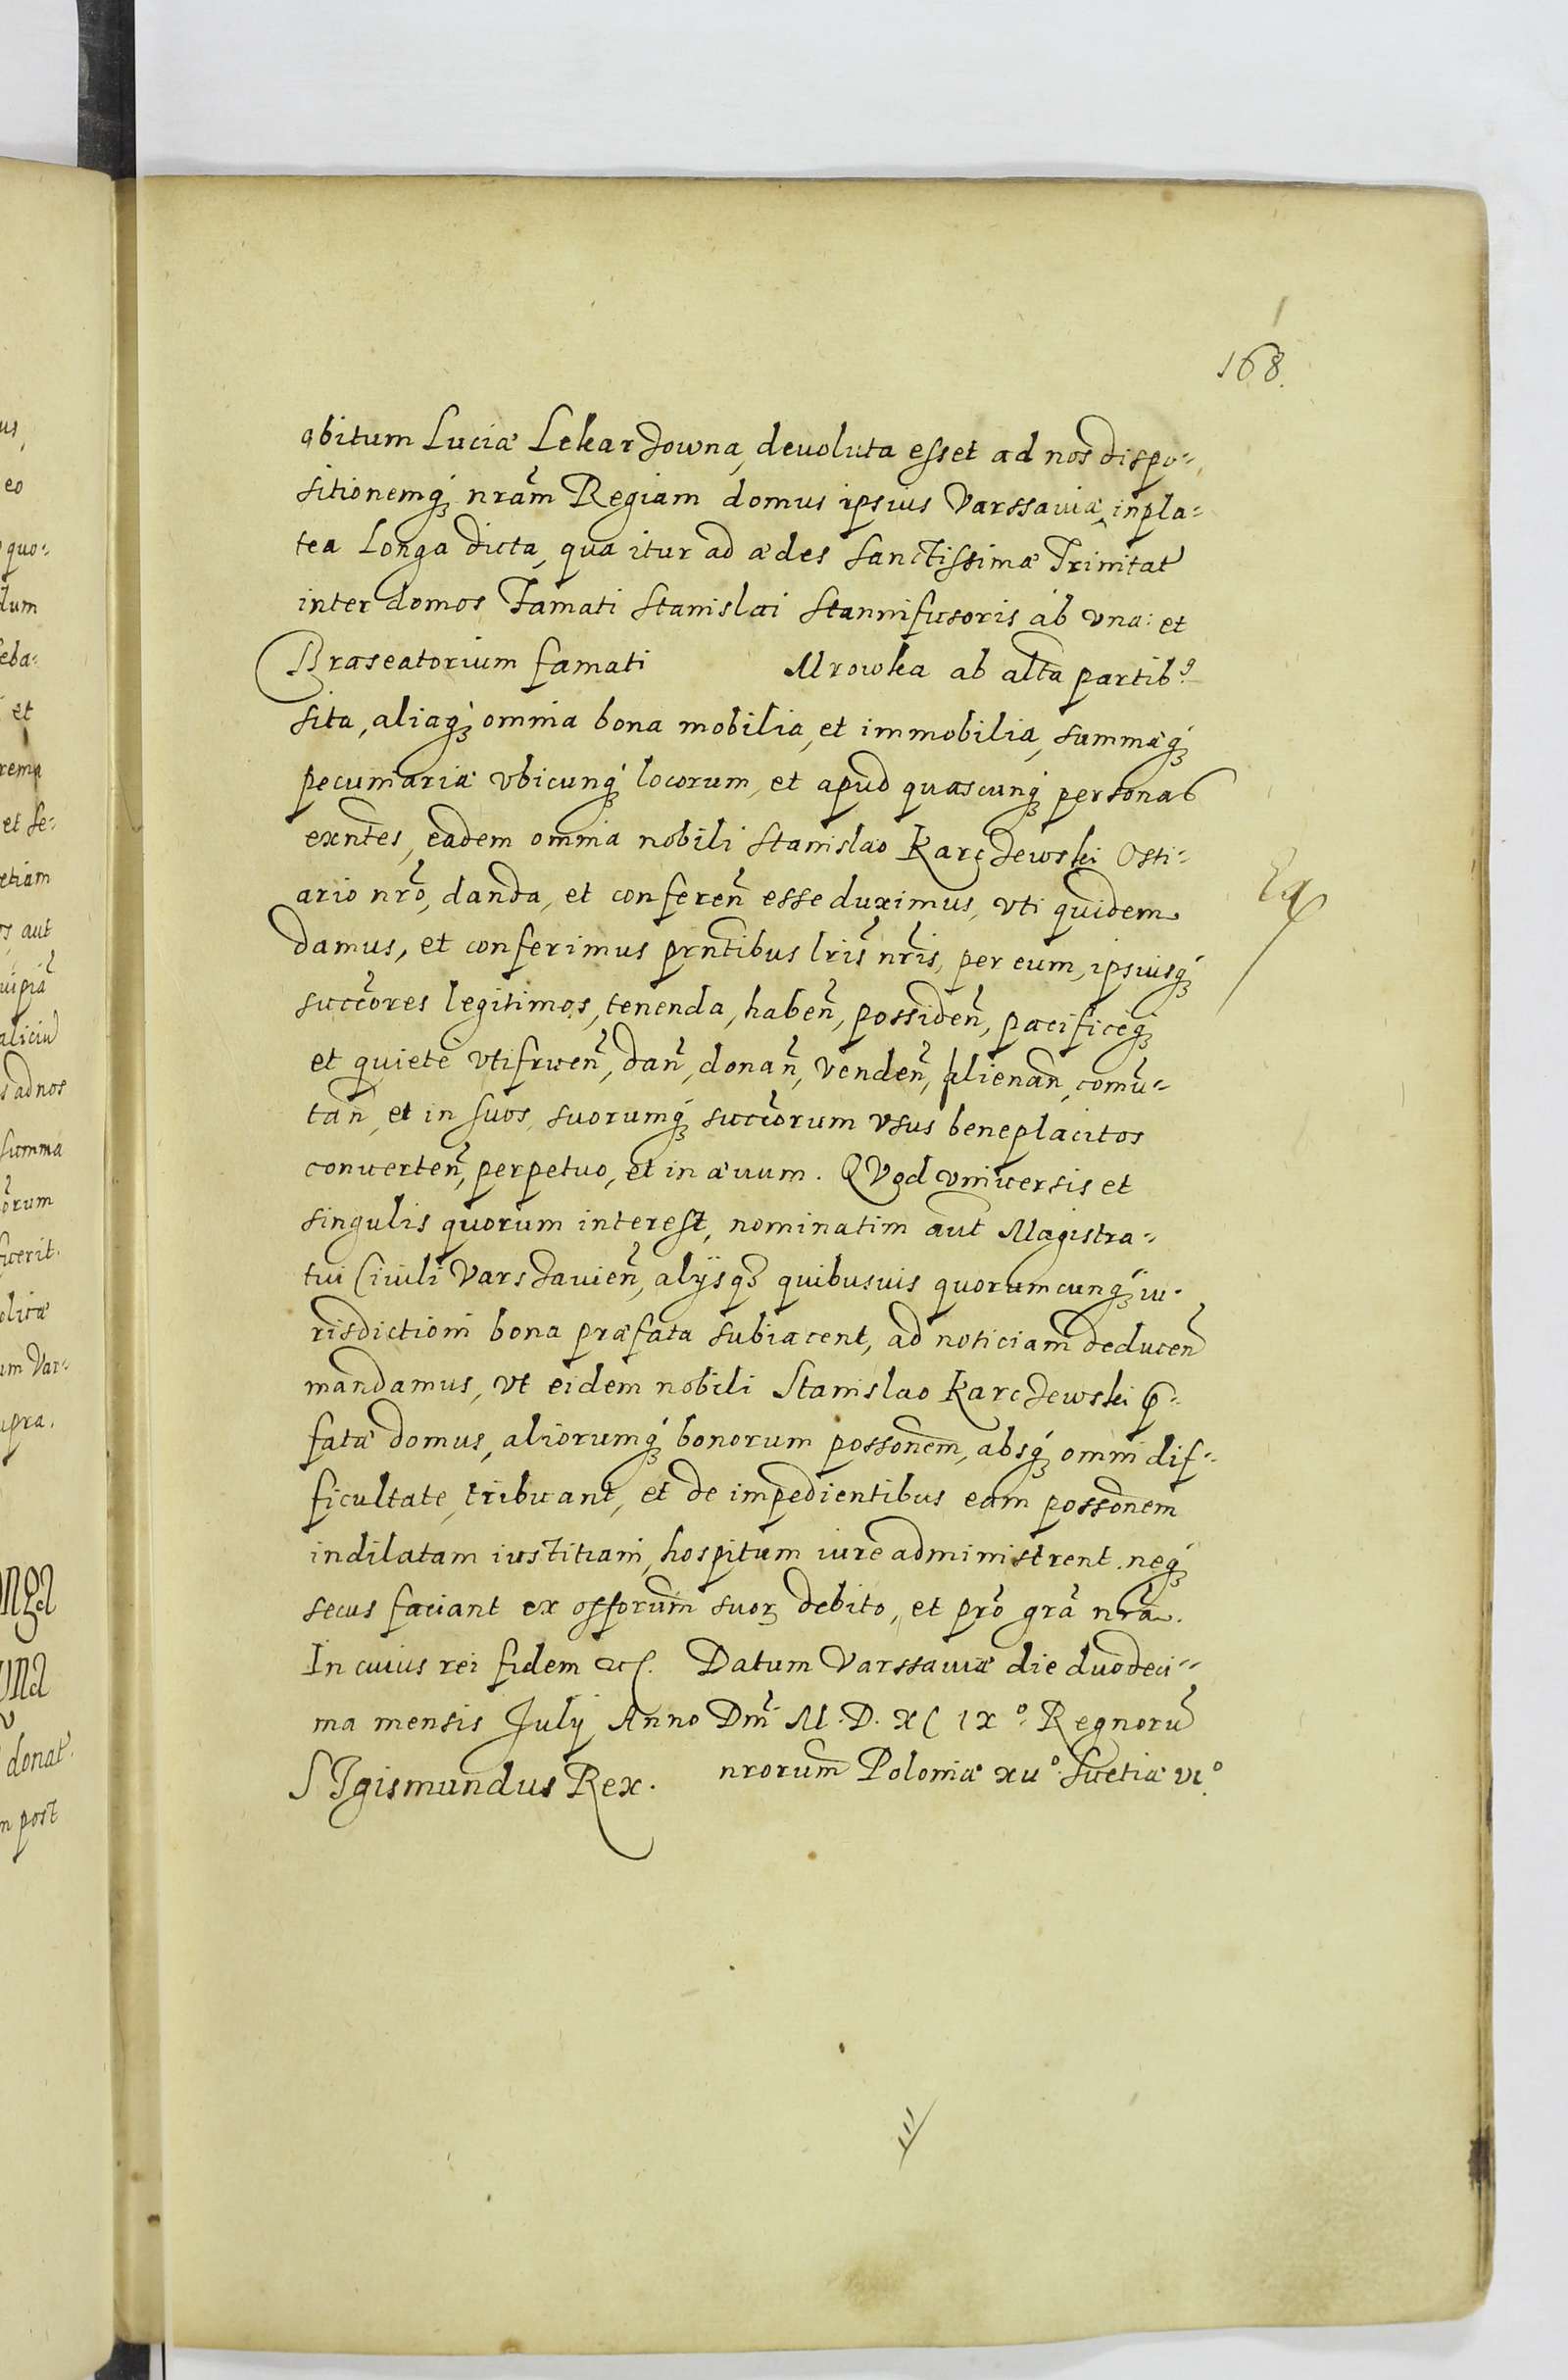 168.
obitum Luciæ Lekarzowna, deuoluta esset ad nos dispo=
sitionemq́ȝ nrãm Regiam domus ipsius Varssauiæ, in pla=
tea Longa dicta, qua itur ad ædes Sanctissimæ Trinitat
inter domos Famati Stanislai Stannifusoris ab vna: et
Braseatorium famati Mrowka ab alta partib9
sita, aliaq́ȝ omnia bona mobilia, et immobilia, summæq́ȝ
pecuniariæ vbicunq́ȝ locorum, et apud quascunq́ȝ personas
exntes, eadem omnia nobili Stanislao Karczewski Osti=
ario nr̃o, danda, et conferen̄ esse duximus, vti quidem
damus, et conferimus prntibus lr̃is nr̃is, per eum, ipsiusq́ȝ
succõres legitimos, tenenda, haben̄, possiden̄, pacificeq́ȝ
et quiete vtifruen̄, dan̄, donan̄, venden̄, alienan̄, comũ=
tan̄, et in suos, suorumq́ȝ succõrum vsus beneplacitos
conuerten̄, perpetuo, et in æuum. QVod vniuersis et
singulis quorum interest, nominatim aut̃ Magistra=
tui Ciuili Varszauien̄, alijsqȝ quibusuis quorumcunq́ȝ iu=
risdictioni bona præfata subiacent, ad noticiam deducen̄
mandamus, vt eidem nobili Stanislao Karczewski p̃=
fatæ domus, aliorumq́ȝ bonorum possonem, absq́ȝ omni dif=
ficultate, tribuant, et de impedientibus eam possonem
indilatam iustitiam, hospitum iure administrent. neq́ȝ
secus faciant ex offorum suorꝫ debito, et pro gr̃a nr̃a.
In cuius rei fidem etc. Datum Varssauiæ die duodeci=
ma mensis July Anno Dm̃. M. D. XC IX°. Regnorũ
nrorum Poloniæ xii°. Suetiæ vi°.
SIgismundus Rex.